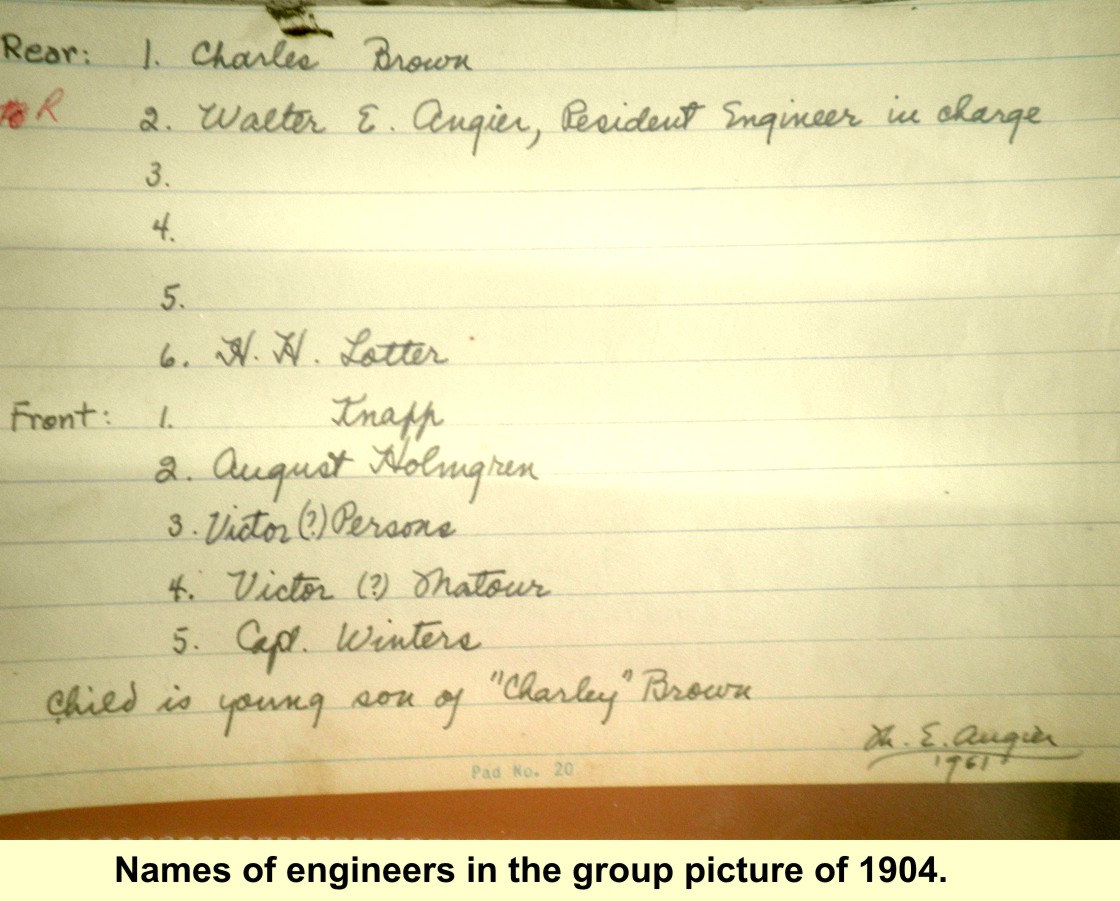 Rear: 1. Charles Brown
R 2. Walter E. Angier, Resident Engineer in charge
3.
4.
5.
6. H. H. Lotter
Front: 1. Knapp
2. August Holmgren
3. Victor (?) Persons
4. Victor (?) Matour
5. Capt. Winters
Child is young son of "Charley" Brown
M. E. Angier
1961
Pad No. 20
Names of engineers in the group picture of 1904.